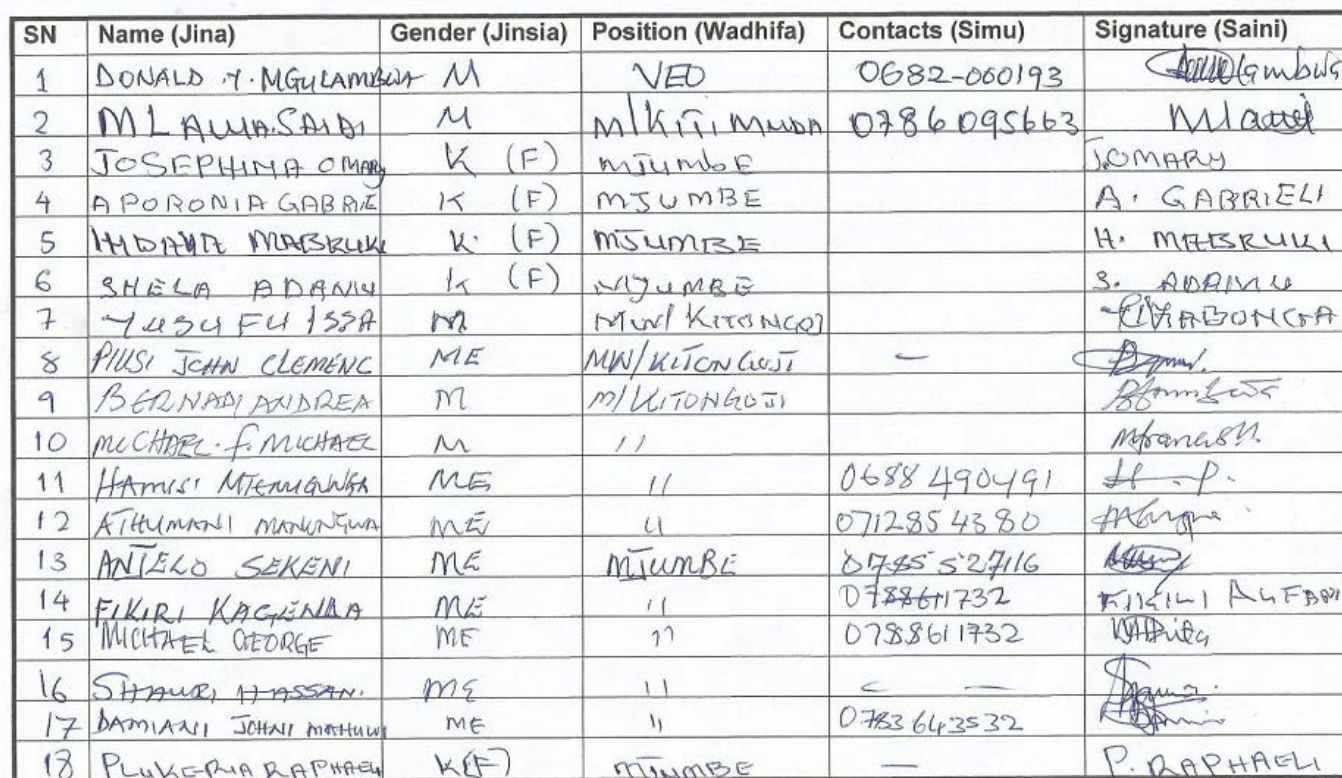 SN Name (Jina) Gender (Jinsia) Position (Wadhifa) Contacts (Simu) Signature (Saini)
1 DONALD Y. MGULAMBWA M VEO 0682-060193
2 MLAWA SAIDI M M/KITI MUDA 0786095663 Mlawa
3 JOSEPHINA OMARY K (F) MJUMBE J.OMARY
4 APORONIA GABRIE K (F) MJUMBE A. GABRIELI
5 HIDAYA MABRUKI K. (F) MJUMBE H. MABRUKI
6 SHELA ADANIU K (F) MJUMBE S. ADANIU
7 YUSUFU ISSA M MW/ KITONGOJI
8 PIUSI JOHN CLEMENC ME MW/KITONGOJI –
9 BERNADI ANDREA M M/KITONGOJI
10 MICHAEL. F. MICHAEL M 11
11 HAMISI ME 11 0688490491 H - P.
12 ATHUMANI MANUNGWA ME 11 0712854380
13 ANTELO SEKENI ME MJUMBE 0785527116
14 FIKIRI KAGEMBA ME 11 0788611732
15 MICHAEL GEORGE ME 11 0788611732
16 SHAURI HASSAN. ME 11 – –
17 DAMIANI JOHNI MATHUWI ME 11 0783643532
18 PLUKERIA RAPHAELI K(F) MJUMBE – P. RAPHAELI